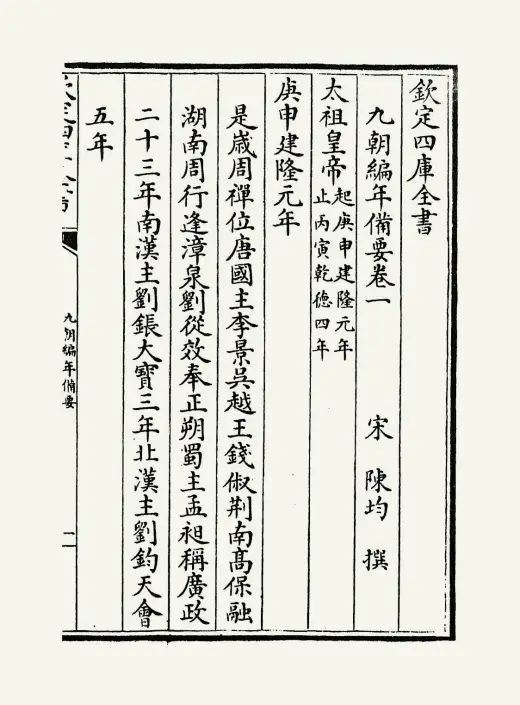 欽定四庫全書
九朝編年備要卷一
宋 陳均 撰
太祖皇帝
起庚申建隆元年
止丙寅乾德四年
庚申建隆元年
是歳周禪位唐國主李景吳越王錢俶荆南髙保融
湖南周行逢漳泉劉從效奉正朔蜀主孟昶稱廣政
二十三年南漢主劉鋹大寳三年北漢主劉鈞天會
五年
九朝編年備要